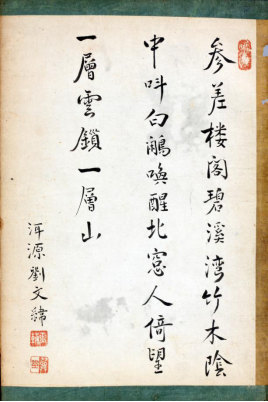 参差楼阁碧溪湾竹木陰
中呌白鷴喚醒北窓人倚望
一層雲鎖一層山
洱源劉文